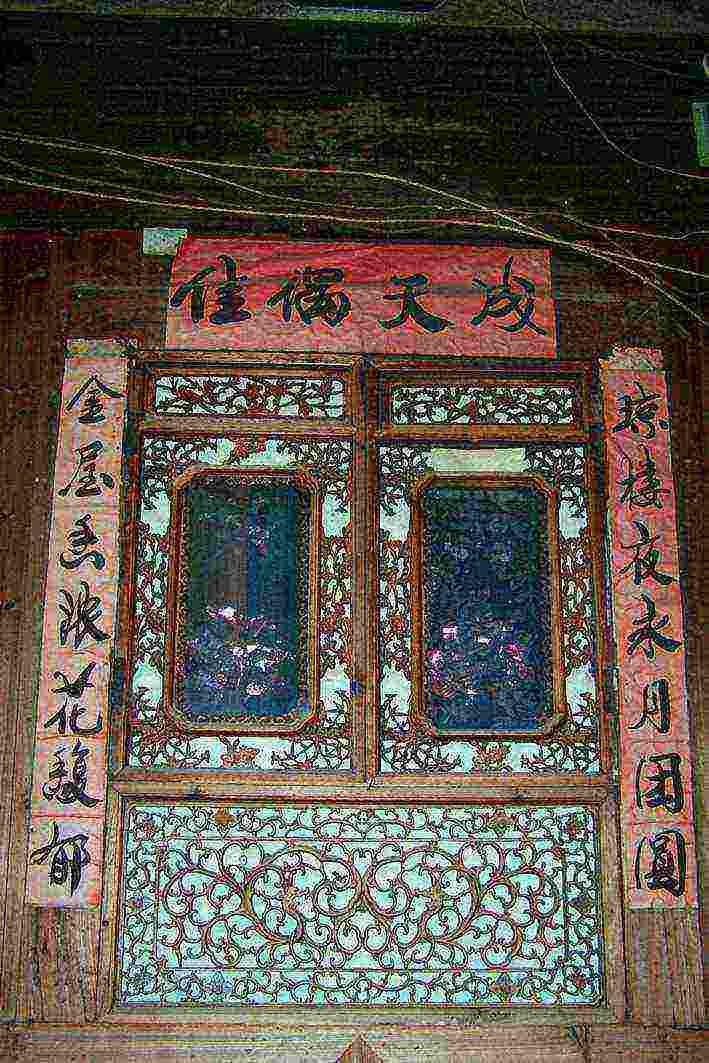 佳偶天成
琼楼夜永月团圆
金屋香浓花馥郁